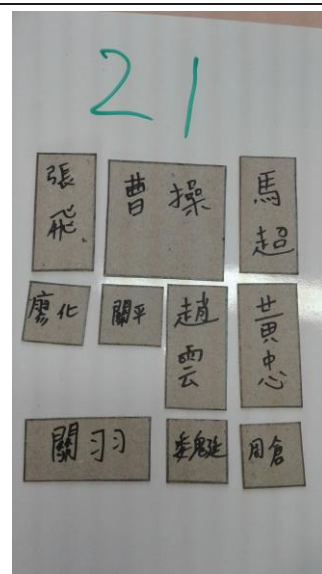 21
張飛 曹操 馬超
廖化 關平 趙雲 黃忠
關羽 魏延 周倉